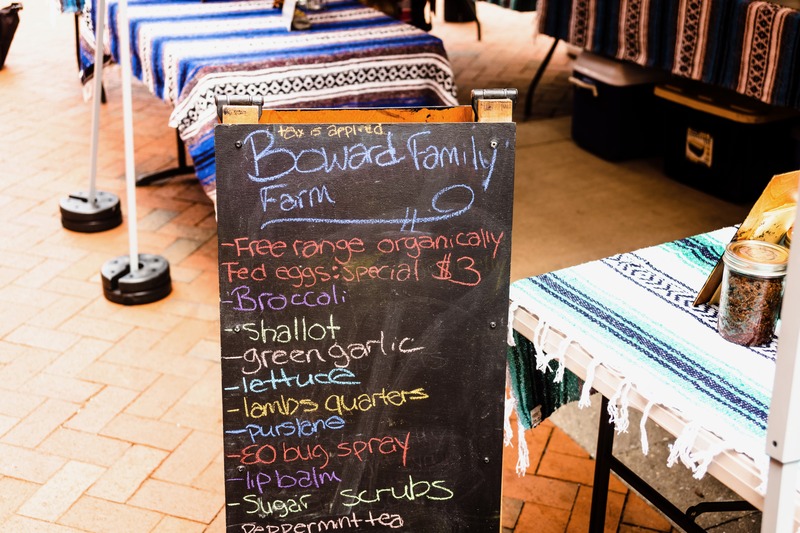 tax is applied
Boward Family
Farm
-Free range organically
Fed eggs: special $3
-Broccoli
-shallot
-green garlic
-lettuce
-lambs quarters
-purslane
-EO bug spray
-lip balm
-Sugar scrubs
Peppermint tea